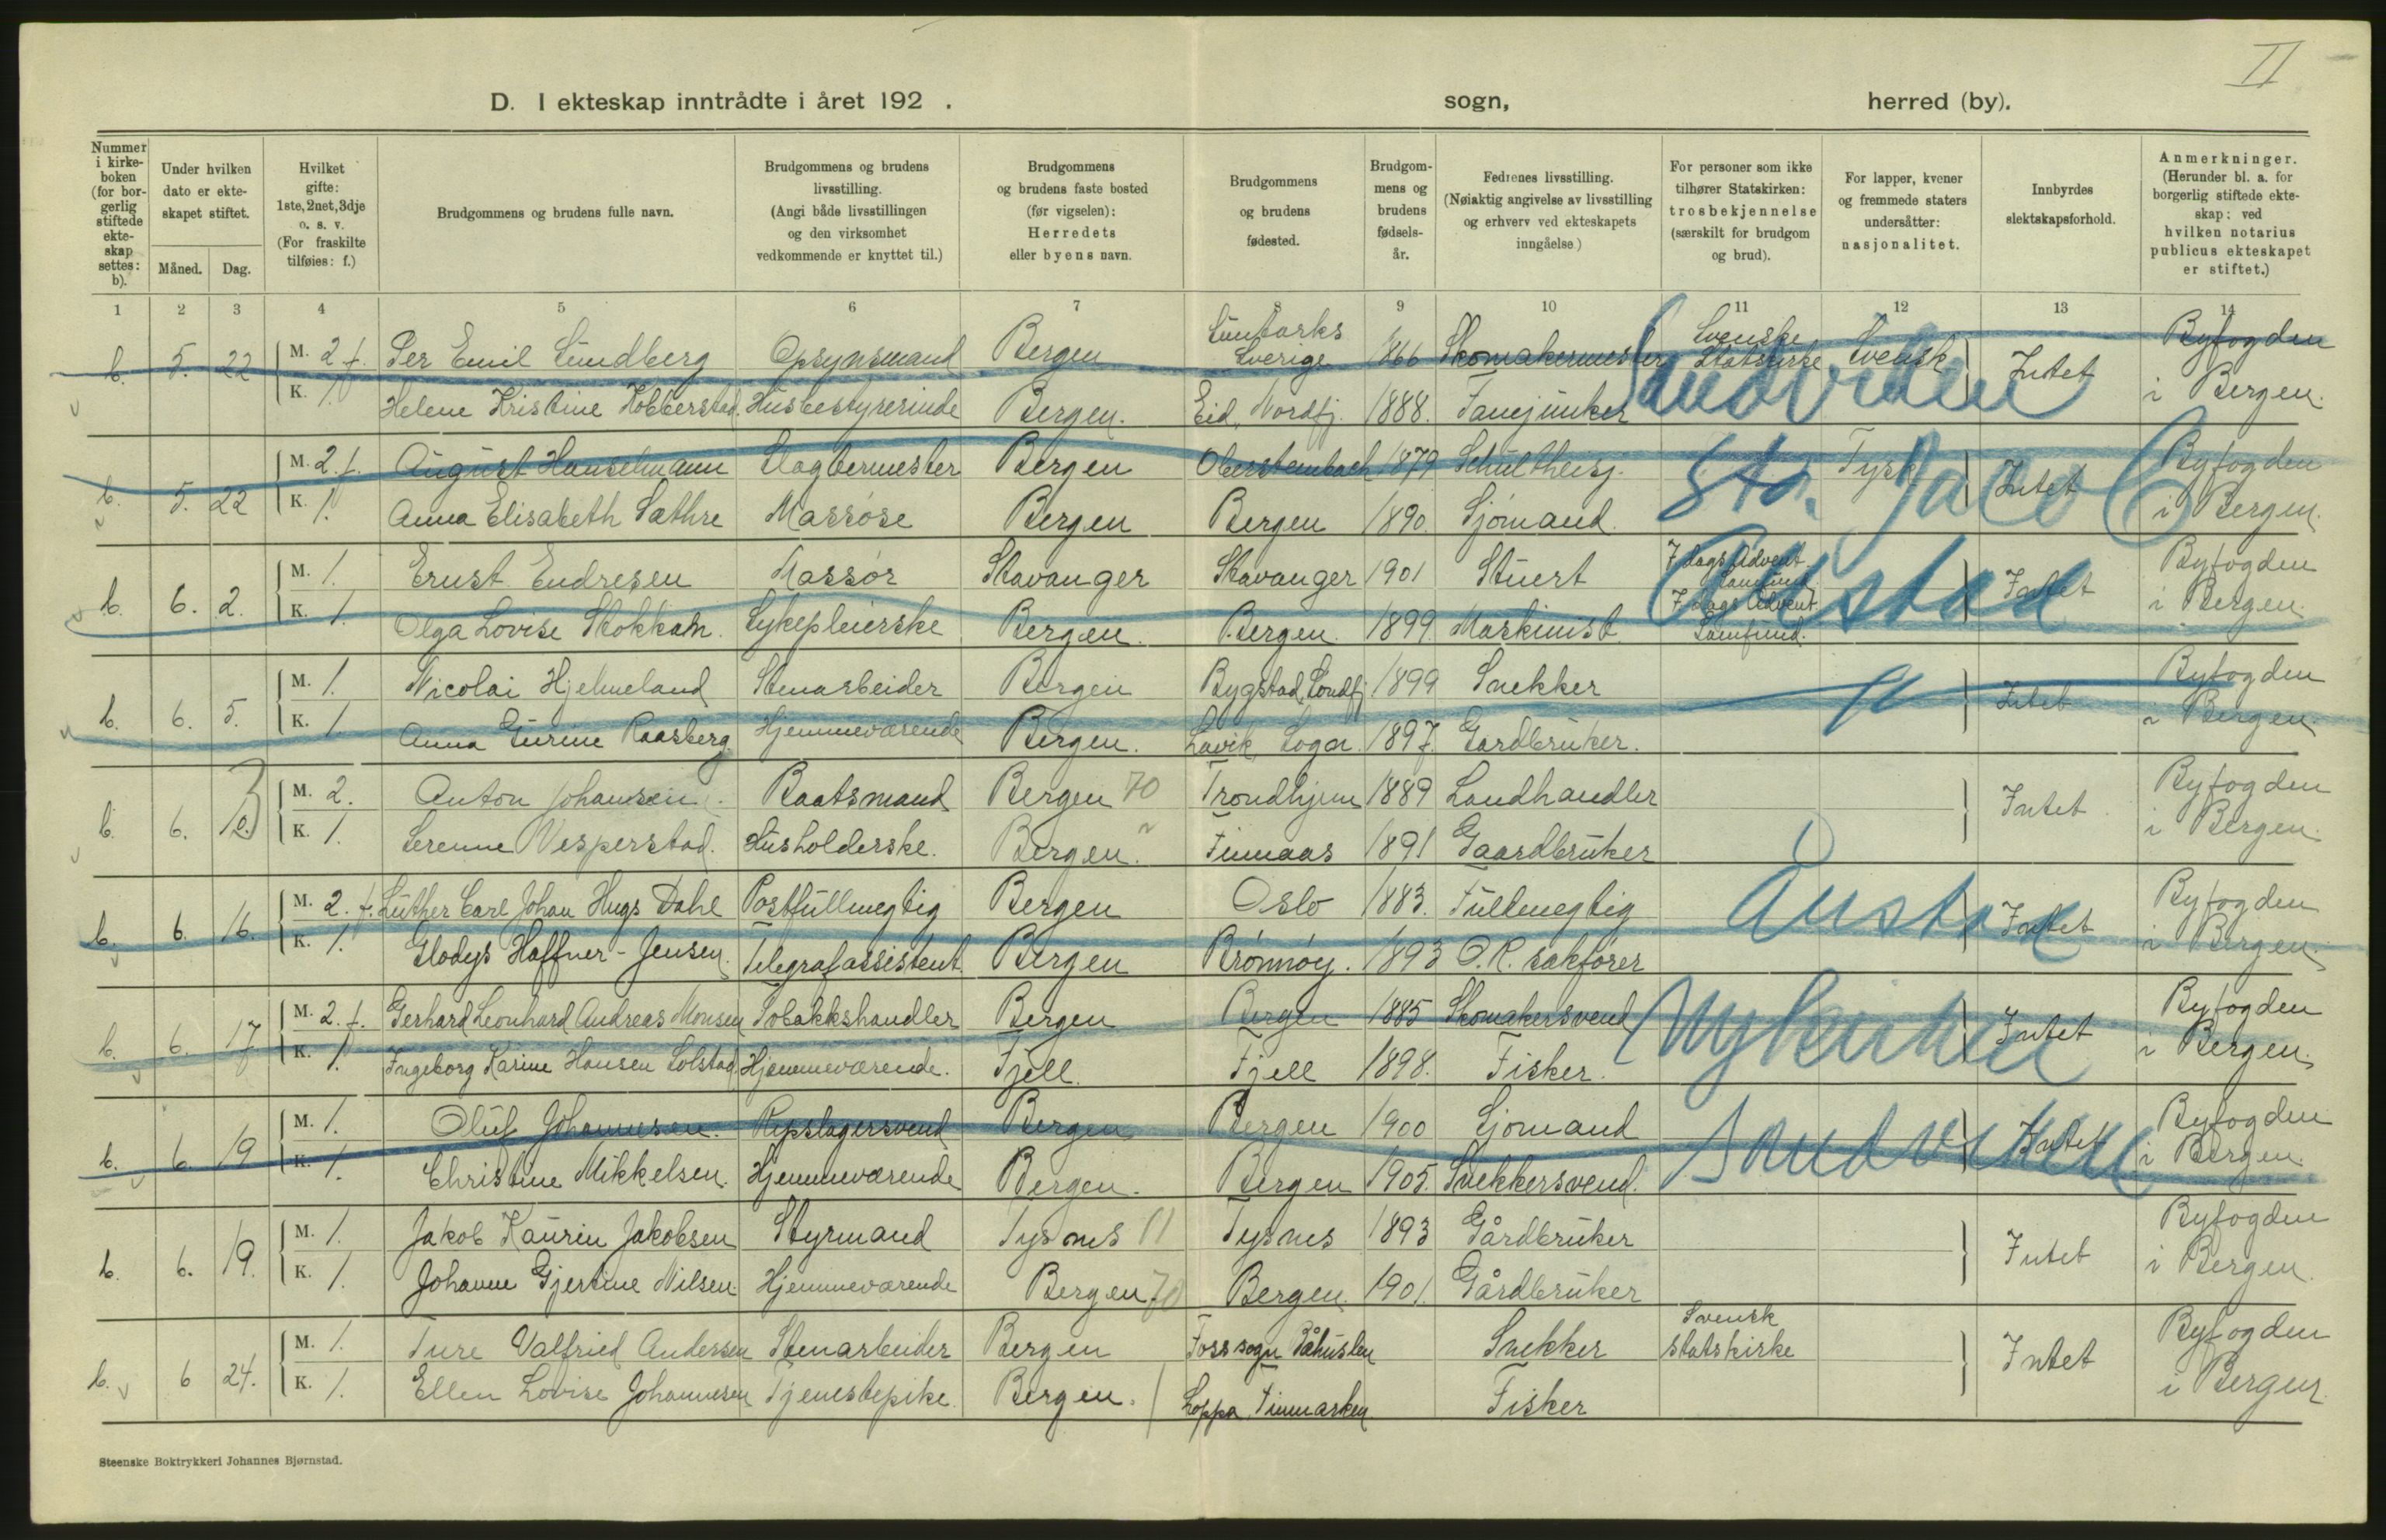 II
D. I ekteskap inntrådte i året 192 . sogn, herred (by).
Nummer i kirkeboken (for borgerlig stiftede ekteskap settes: b). | Under hvilken dato er ekteskapet stiftet. Måned. Dag. | Hvilket gifte: 1ste, 2net, 3dje o. s. v. (For fraskilte tilføies: f.) | Brudgommens og brudens fulle navn. | Brudgommens og brudens livsstilling. (Angi både livsstillingen og den virksomhet vedkommende er knyttet til.) | Brudgommens og brudens faste bosted (før vigselen): Herredets eller byens navn. | Brudgommens og brudens fødested. | Brudgommens og brudens fødselsår. | Fedrenes livsstilling. (Nøiaktig angivelse av livsstilling og erhverv ved ekteskapets inngåelse.) | For personer som ikke tilhører Statskirken: trosbekjennelse (særskilt for brudgom og brud). | For lapper, kvener og fremmede staters undersåtter: nasjonalitet. | Innbyrdes slektskapsforhold. | Anmerkninger. (Herunder bl. a. for borgerlig stiftede ekteskap: ved hvilken notarius publicus ekteskapet er stiftet.)
1 2 3 4 5 6 7 8 9 10 11 12 13 14
b. 5. 22 M. 2 f. Per Emil Sundberg Opsynsmand Bergen Sverige 1866 Skomakermester Svenske Statskirke Svensk Intet Byfogden
K. 1. Helene Kristine Kobberstad Husbestyrerinde Bergen. Eid, Nordfj. 1888. Fanejunker i Bergen.
Sandviken
b. 5. 22 M. 2. f. August Hanselmann Slagtermester Bergen Obersteinbach 1879 Tysk Intet Byfogden
K. 1. Anna Elisabeth Sathre Massøse Bergen Bergen 1890. Sjømand. i Bergen.
St. Jacob
b. 6. 2. M. 1. Ernst Endresen Massør Stavanger Stavanger 1901 Stuert 7 dags Advent. Samfund Intet Byfogden
K. 1. Olga Lovise Stokkan. Sykepleierske Bergen. Bergen. 1899. Maskinist 7 dags Advent. Samfund. i Bergen.
Årstad
b. 6. 5. M. 1. Nicolai Hjelmeland Stenarbeider Bergen Bygstad, Søndfj. 1899 Snekker Intet Byfogden
K. 1. Anna Gurine Raasberg Hjemmeværende Bergen. Lavik Sogn 1897. Gardbruker. i Bergen.
b. 6. M. 2. Anton Johansen. Baatsmand Bergen 70 Trondhjem 1889 Landhandler Intet Byfogden
K. 1. Serenne Vesperstad. Husholderske. Bergen. Finnaas 1891 Gaardbruker i Bergen.
b. 6. 16. M. 2. f. Luther Carl Johan Hugs Dahl Postfullmegtig Bergen Oslo 1883. Fullmegtig Intet Byfogden
K. 1. Gladys Haffner-Jensen. Telegrafassistent Bergen Brønnøy. 1893 O.R. sakfører i Bergen.
b. 6. 17 M. 2. f. Gerhard Leonhard Andreas Monsen Tobakkshandler Bergen Bergen 1885 Skomakersvend Intet Byfogden
K. 1. Ingeborg Karine Hansen Solstad Hjemmeværende. Fjell. Fjell 1898. Fisker. i Bergen.
Nykirken
b. 6. 19 M. 1. Oluf Johannesen. Repslagersvend Bergen Bergen 1900 Sjømand Intet Byfogden
K. 1. Christine Mikkelsen. Hjemmeværende Bergen. Bergen 1905. Snekkersvend. i Bergen.
Sandviken
b. 6. 19. M. 1. Jakob Kaurin Jakobsen Styrmand Tysnes 11 Tysnes 1893 Gårdbruker Intet Byfogden
K. 1. Johanne Gjertine Nilsen Hjemmeværende Bergen 70 Bergen. 1901. Gårdbruker i Bergen.
b. 6 24. M. 1. Ture Valfried Andersen Stenarbeider Bergen Foss sogn Båhuslen Snekker Svensk statskirke Intet Byfogden
K. 1. Ellen Lovise Johannesen Tjenestepike. Bergen. Loppa Finmarken Fisker i Bergen.
Steenske Boktrykkeri Johannes Bjørnstad.